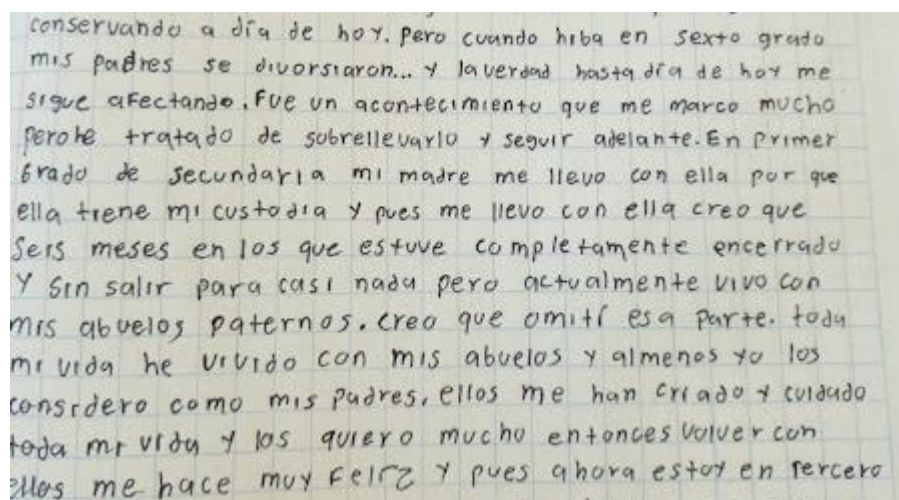 conservando a día de hoy. pero cuando hiba en sexto grado
mis padres se divorsiaron... y laverdad hasta día de hoy me
sigue afectando. Fue un acontecimiento que me marco mucho
perohe tratado de sobrellevarlo y seguir adelante. En primer
Grado de secundaria mi madre me llevo con ella por que
ella tiene mi custodia y pues me llevo con ella creo que
Seis meses en los que estuve completamente encerrado
Y sin salir para casi nada pero actualmente vivo con
mis abuelos paternos. creo que omití esa parte. toda
mi vida he vivido con mis abuelos y almenos yo los
considero como mis padres, ellos me han criado y cuidado
toda mi vida y los quiero mucho entonces volver con
ellos me hace muy feliz y pues ahora estoy en Tercero